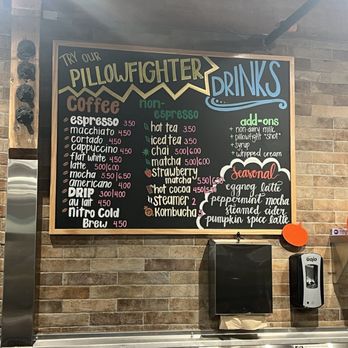 TRY OUR
PILLOWFIGHTER DRINKS
Coffee
espresso 3.50
macchiato 4.50
cortado 4.50
cappuccino 4.50
flat white 4.50
latte 5.00|6.00
mocha 5.50|6.50
americano 4.00
DRIP 3.00|4.00
au lait 4.50
Nitro Cold
Brew 4.50
non-
espresso
hot tea 3.50
iced tea 3.50
chai 5.00|6.00
matcha 5.00|6.00
strawberry
matcha
hot cocoa
steamer
Kombucha
add-ons
+ non-dairy milk
+ pillowfight "shot"
+ syrup
+ whipped cream
Seasonal
eggnog latte
peppermint mocha
steamed cider
pumpkin spice latte
gojo